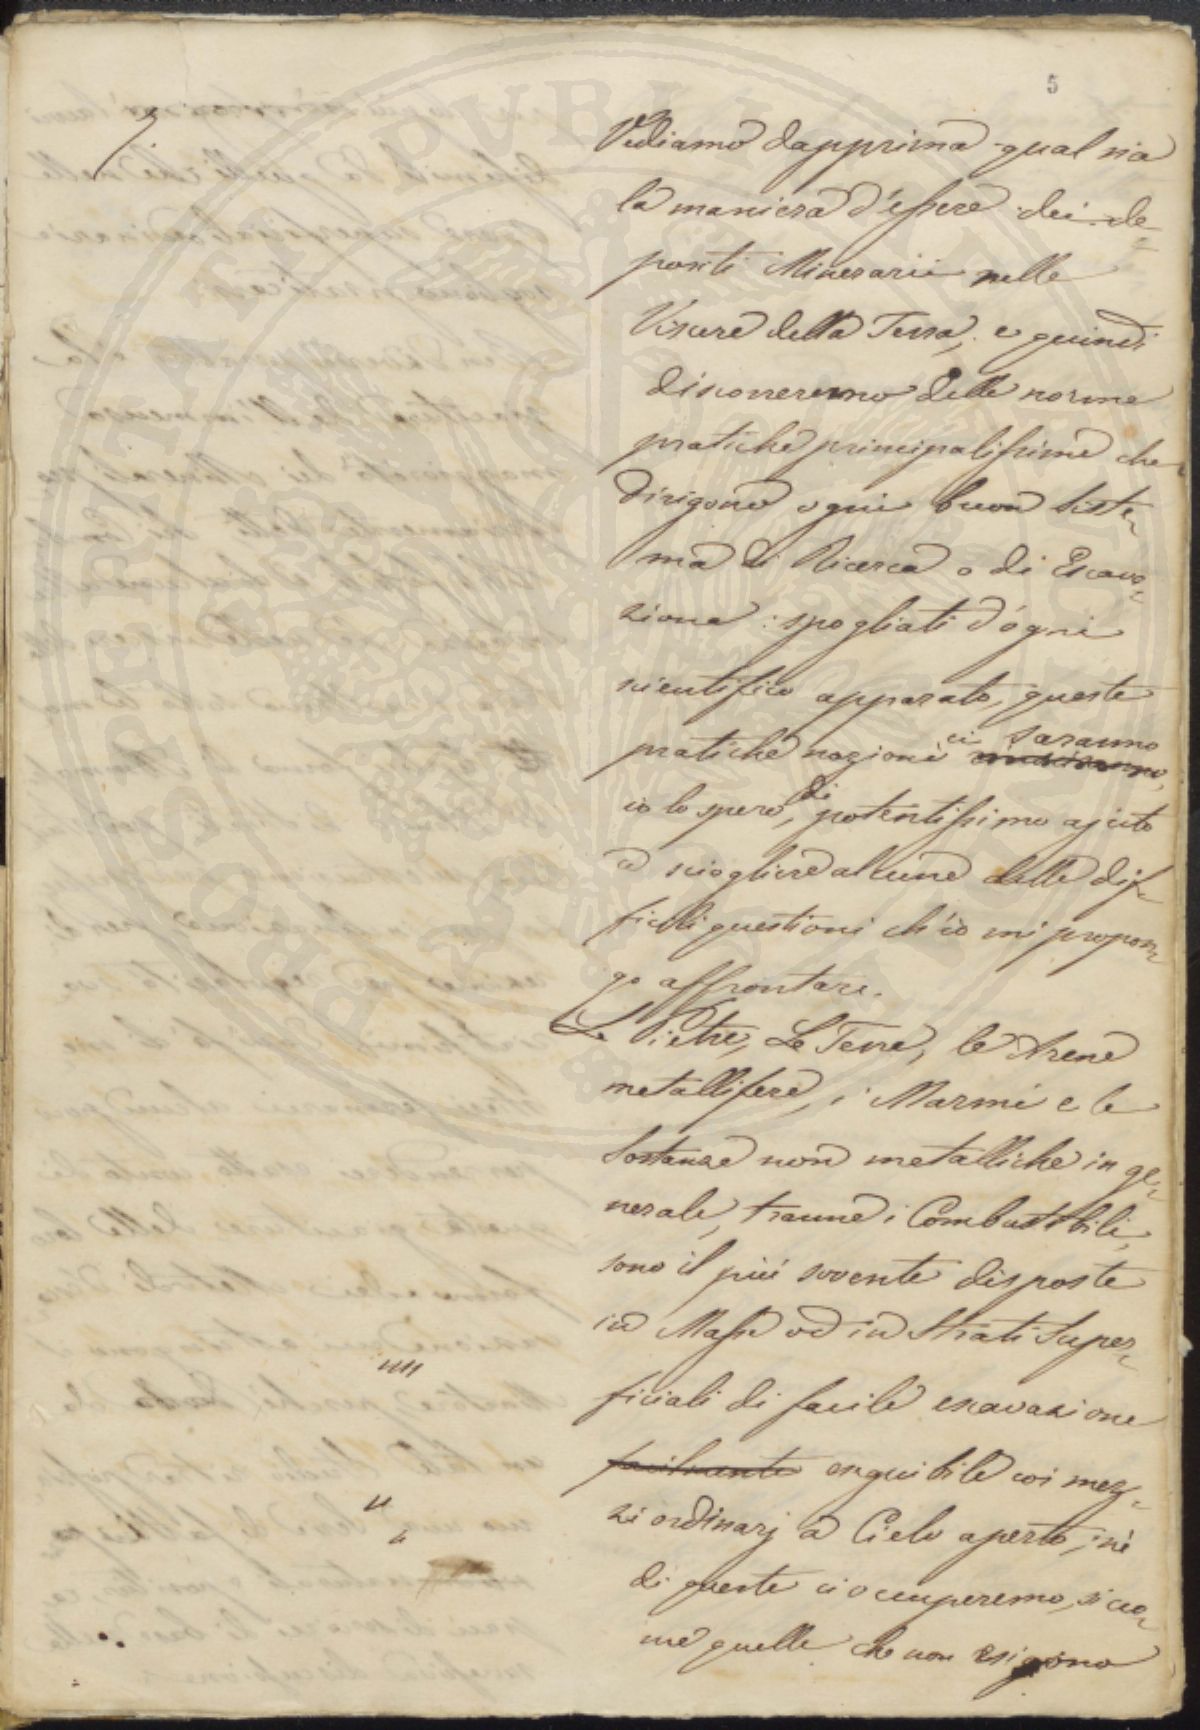 5
Vediamo dapprima qual sia
la maniera d'essere dei de=
positi Minerarii nelle
Viscere della Terra, e quindi
discorreremo delle norme
pratiche principalissime che
dirigono ogni buon Siste=
ma di Ricerca o di Escava=
zione : spogliati d'ogni
scientifico apparato, queste
pratiche nozioni ci saranno
io lo spero, di potentissimo ajuto
a sciogliere alcune delle dif=
ficili questioni ch'io mi propon=
go affrontare.
Le Pietre, Le Terre, le Arene
metallifere, i Marmi e le
Sostanze non metalliche in ge=
nerale, tranne i Combustibili,
sono il più sovente disposte
in Masse od in Strati Super=
ficiali di facile escavazione
facilmente eseguibile coi mez=
zi ordinarj a Cielo aperto, nè
di queste ci occuperemo, sicco=
me quelle che non esigono